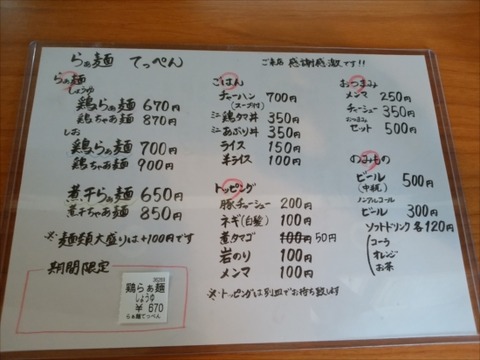 らぁ麺 てっぺん
ご来店 感謝感激です!!
らぁ麺
しょうゆ
鶏らぁ麺 670円
鶏ちゃあ麺 870円
しお
鶏らぁ麺 700円
鶏ちゃあ麺 900円
煮干らぁ麺 650円
煮干ちゃあ麺 850円
※麺類大盛りは+100円です
期間限定
鶏らぁ麺
しょうゆ
¥ 670
らぁ麺てっぺん
ごはん
チャーハン 700円
(スープ付)
ミニ鶏タマ丼 350円
ミニあぶり丼 350円
ライス 150円
半ライス 100円
トッピング
豚チャーシュー 200円
ネギ(白髪) 100円
煮タマゴ 100円 50円
岩のり 100円
メンマ 100円
※トッピングは別皿でお持ち致します
おつまみ
メンマ 250円
チャーシュー 350円
おつまみ
セット 500円
のみもの
ビール 500円
(中瓶)
ノンアルコール
ビール 300円
ソフトドリンク 各120円
コーラ
オレンジ
お茶